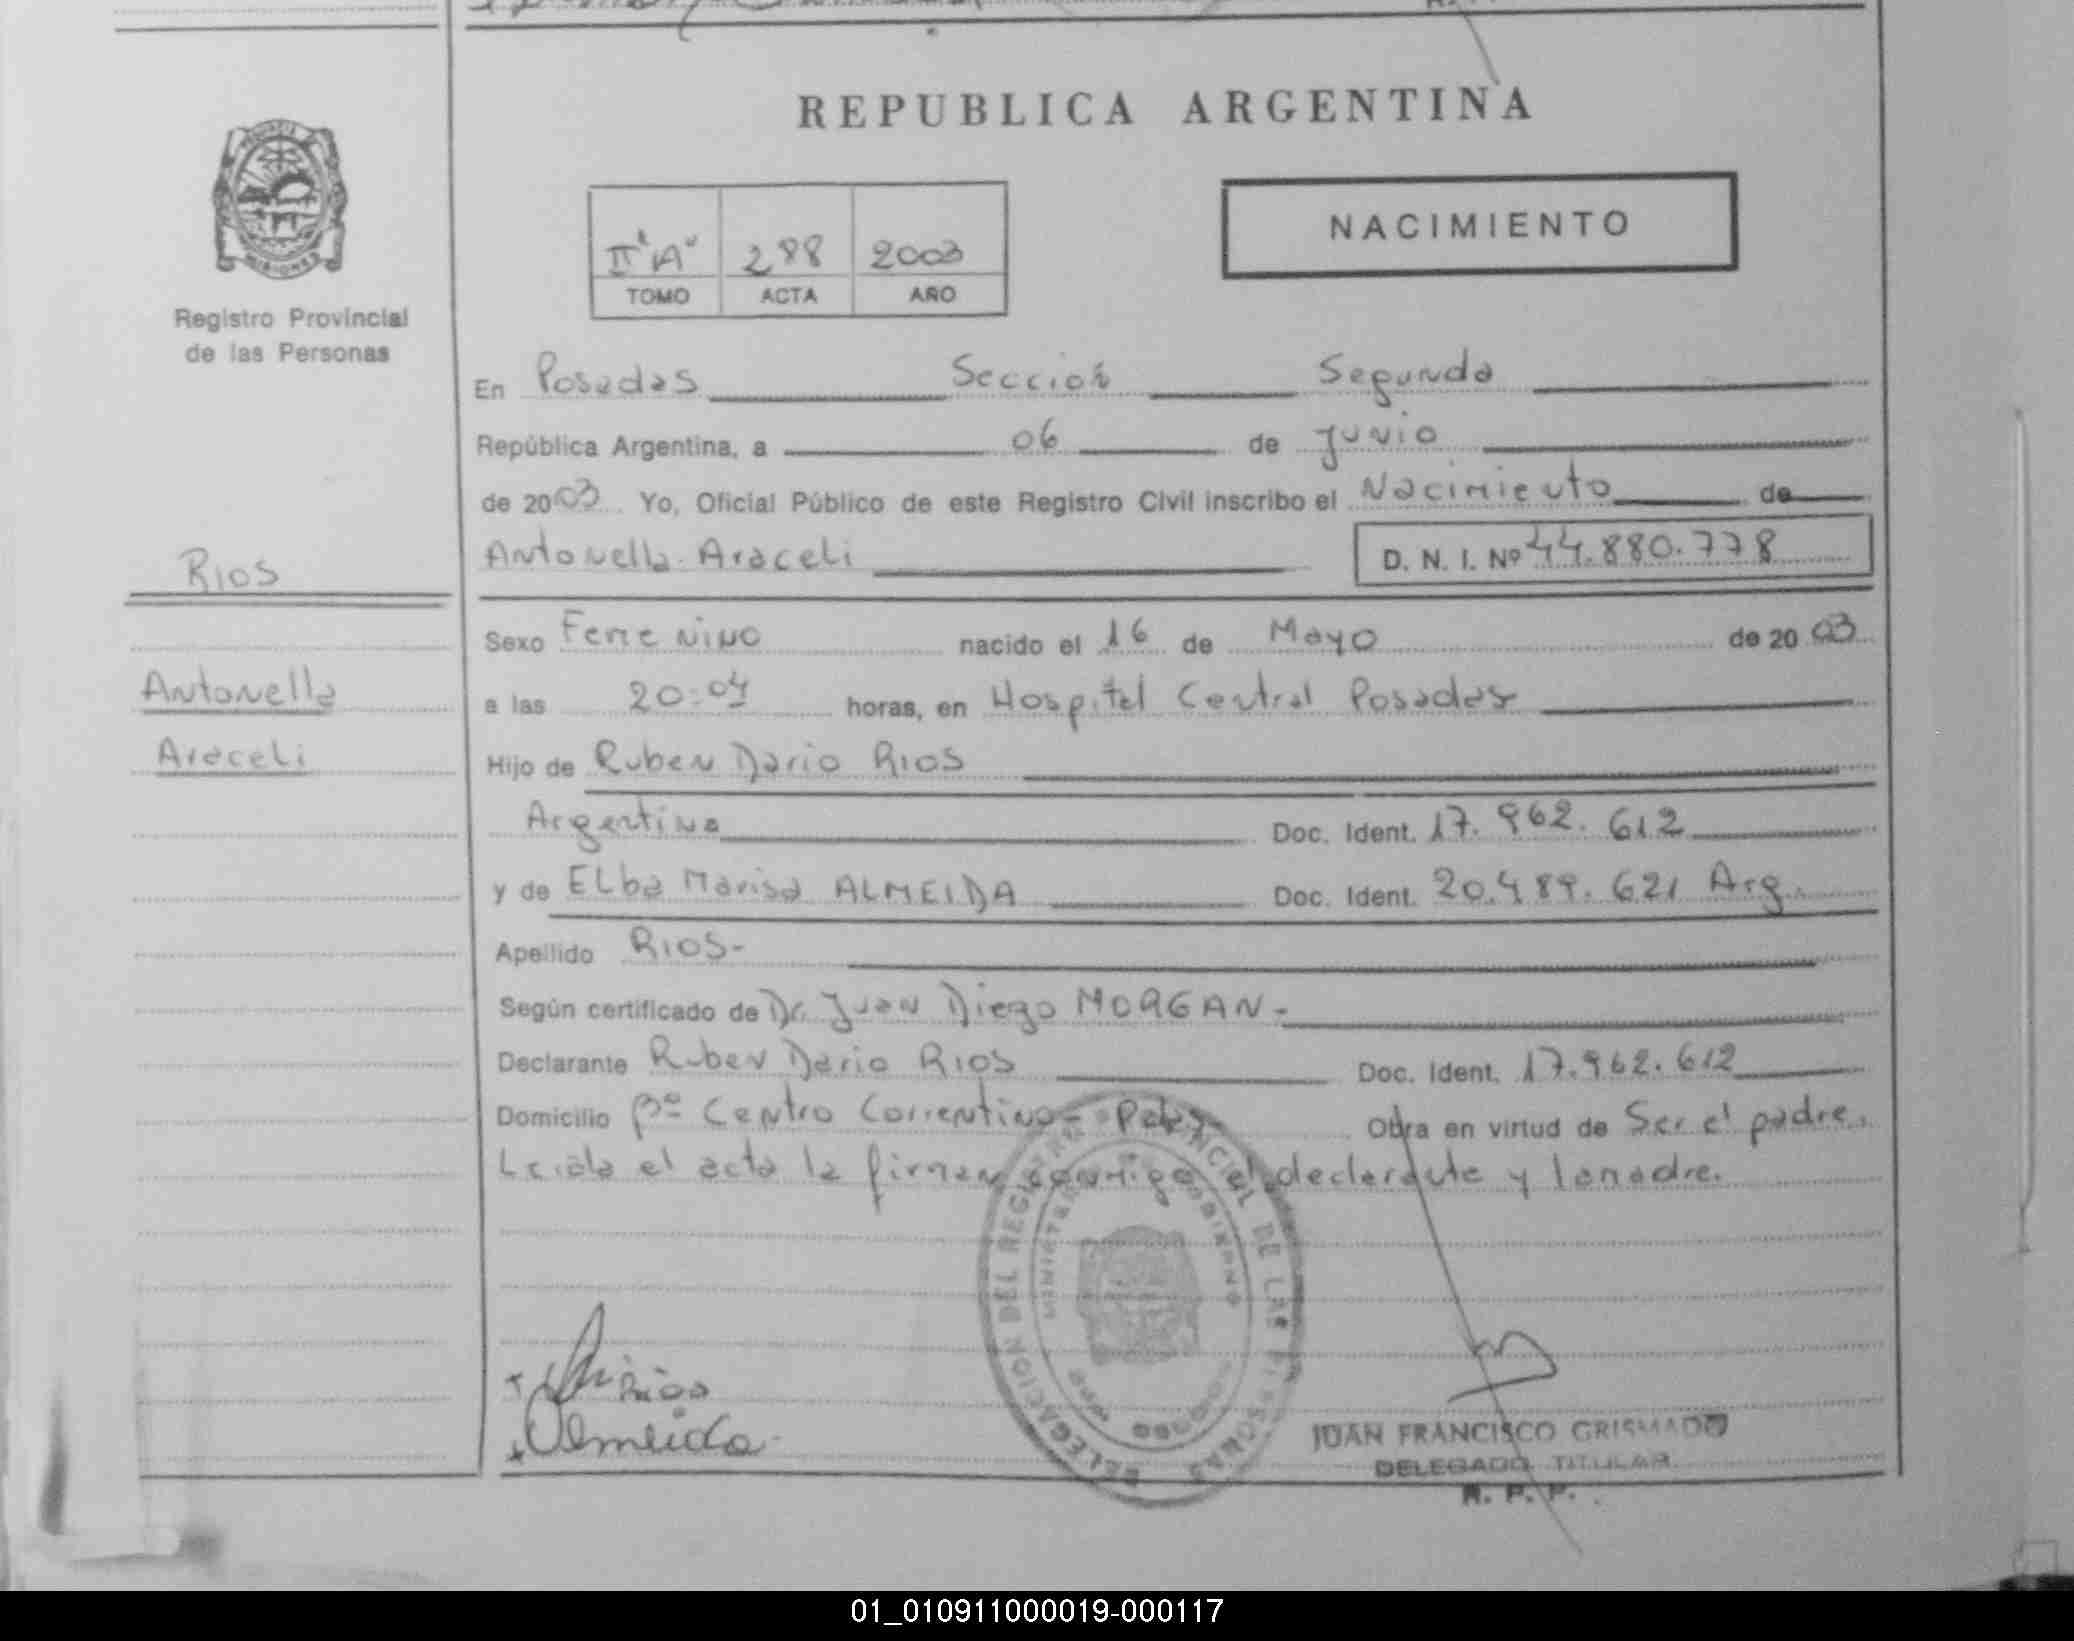 REPUBLICA ARGENTINA
NACIMIENTO
II "A" 288 2003
TOMO ACTA AÑO
MISIONES
Registro Provincial
de las Personas
En Posadas Sección Segunda
República Argentina, a 06 de Junio
de 2003 Yo, Oficial Público de este Registro Civil inscribo el Nacimiento de
Antonella Araceli D. N. I. Nº 44.880.778
RIOS
Antonella
Araceli
Sexo Femenino nacido el 16 de Mayo de 2003
a las 20:04 horas, en Hospital Central Posadas
Hijo de Ruben Dario RIOS
Argentino Doc. Ident. 17.962.612
y de ELba Marisa ALMEIDA Doc. Ident. 20.489.621 Arg.
Apellido RIOS-
Según certificado de Dr. Juan Diego MORGAN-
Declarante Ruben Dario RIOS Doc. Ident. 17.962.612
Domicilio Bº Centro Correntino- Obra en virtud de Ser el padre.
Leida el acta la firman conmigo el declarante y la madre.
Rios
Almeida
DELEGACION DEL REGISTRO PROVINCIAL DE LAS PERSONAS
MINISTERIO GOBIERNO
JUAN FRANCISCO GRISMADO
DELEGADO TITULAR
R. P. P.
01_010911000019-000117